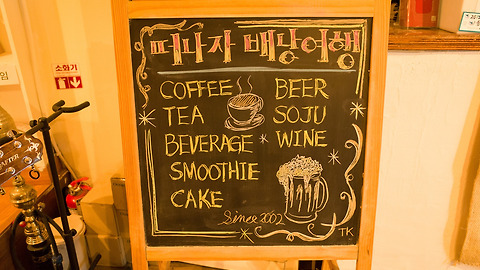 피나자 배낭여행
COFFEE
TEA
BEVERAGE
SMOOTHIE
CAKE
BEER
SOJU
WINE
Since 2002
TK
소화기